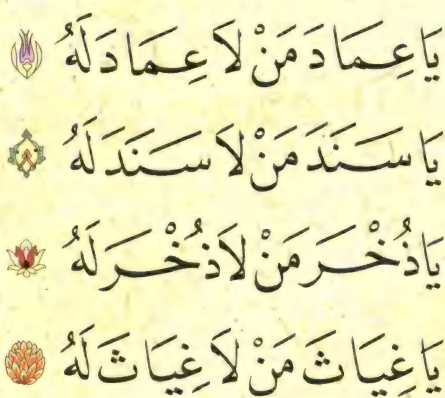 يَا عِمَادَ مَنْ لَا عِمَادَ لَهُ
يَا سَنَدَ مَنْ لَا سَنَدَ لَهُ
يَا ذُخْرَ مَنْ لَا ذُخْرَ لَهُ
يَا غِيَاثَ مَنْ لَا غِيَاثَ لَهُ